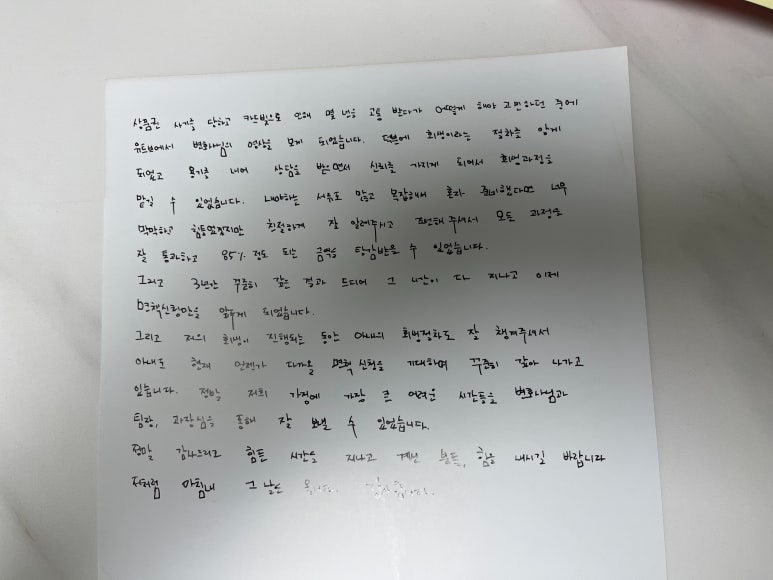 상품권 사기를 당하고 카드빚으로 인해 몇 년을 고통 받다가 어떻게 해야 고민하던 중에
유튜브에서 변호사님의 영상을 보게 되었습니다. 덕분에 회생이라는 절차를 알게
되었고 용기를 내어 상담을 받으면서 신뢰를 가지게 되어서 회생과정을
맡길 수 있었습니다. 내야하는 서류도 많고 복잡해서 혼자 준비했다면 너무
막막하고 힘들었겠지만 친절하게 잘 알려주시고 조언해 주셔서 모든 과정을
잘 통과하고 85% 정도 되는 금액을 탕감받을 수 있었습니다.
그리고 3년간 꾸준히 갚은 결과 드디어 그 시간이 다 지나고 이제
면책신청만을 앞두게 되었습니다.
그리고 저의 회생이 진행되는 동안 아내의 회생절차도 잘 챙겨주셔서
아내도 현재 언젠가 다가올 면책 신청을 기대하며 꾸준히 갚아 나가고
있습니다. 정말 저희 가정에 가장 큰 어려운 시간들을 변호사님과
팀장, 과장님을 통해 잘 보낼 수 있었습니다.
정말 감사드리고 힘든 시간을 지나고 계신 분들, 힘을 내시길 바랍니다
저처럼 마침내 그 날은 옵니다. 감사합니다.